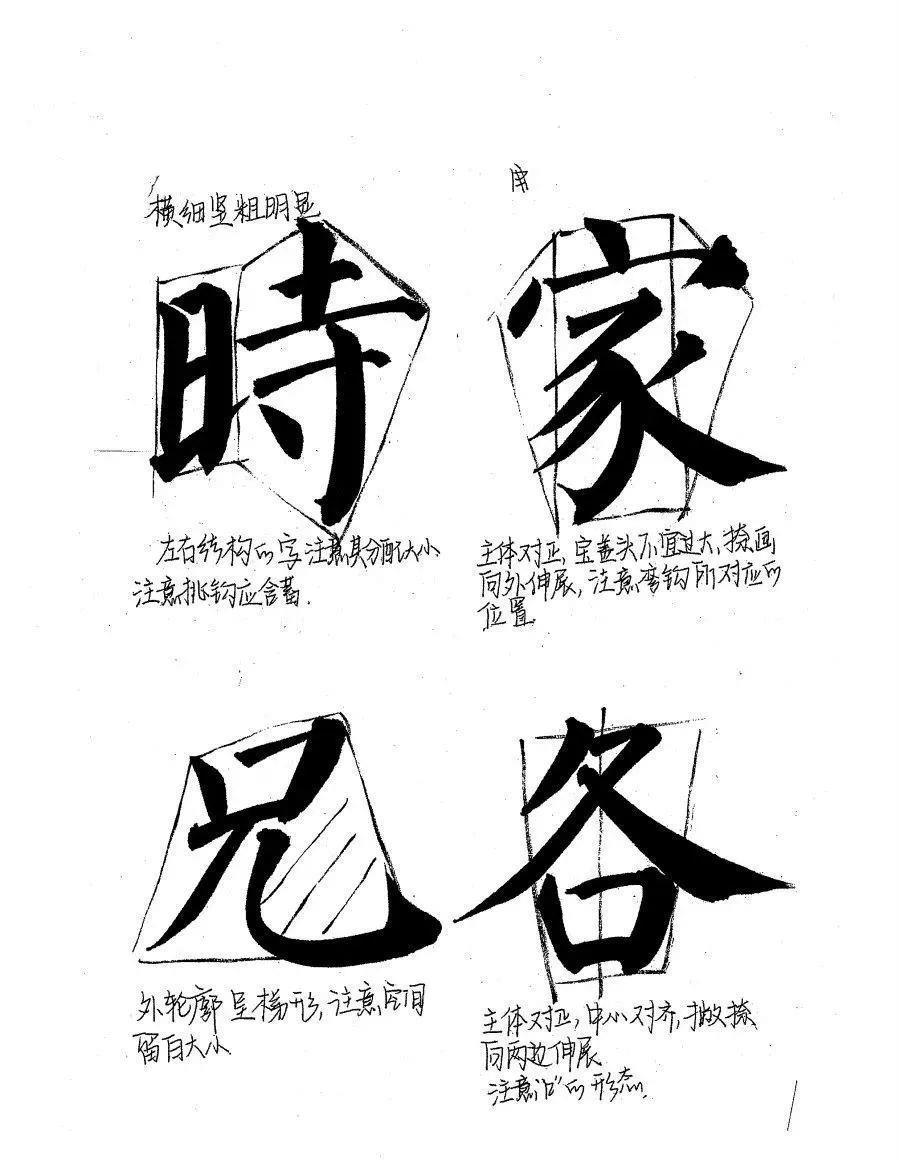 横细竖粗明显
時
家
左右结构的字注意其分配大小
注意挑钩应含蓄.
主体对正,宝盖头不宜过大,捺画
向外伸展,注意弯钩所对应的
位置.
兄
各
外轮廓呈梯形,注意空间
留白大小
主体对正,中心对齐,撇捺
向两边伸展
注意"口"的形态.